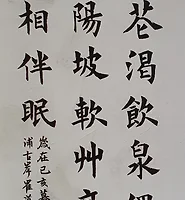 苍渴飲泉
陽坡軟艸
相伴眠
歲在己亥
浦古岸崔